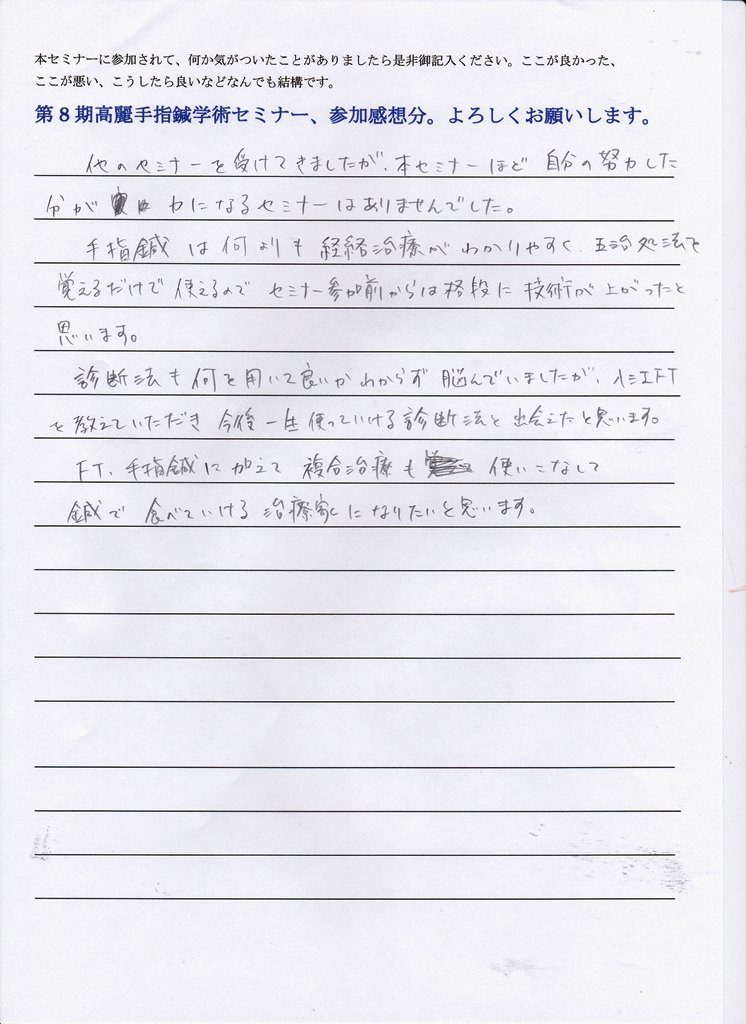 本セミナーに参加されて、何か気がついたことがありましたら是非御記入ください。ここが良かった、
ここが悪い、こうしたら良いなどなんでも結構です。
第8期高麗手指鍼学術セミナー、参加感想分。よろしくお願いします。
他のセミナーを受けてきましたが、本セミナーほど 自分の努力した
分が 力になるセミナーはありませんでした。
手指鍼は何よりも経絡治療がわかりやすく、五治処法を
覚えるだけで使えるので セミナー参加前からは格段に技術が上がったと
思います。
診断法も何を用いて良いかわからず脳んでいましたが、入江FT
を教えていただき 今後一生使っていける診断法と出会えたと思います。
FT、手指鍼に加えて 複合治療も 使いこなして
鍼で食べていける治療家になりたいと思います。